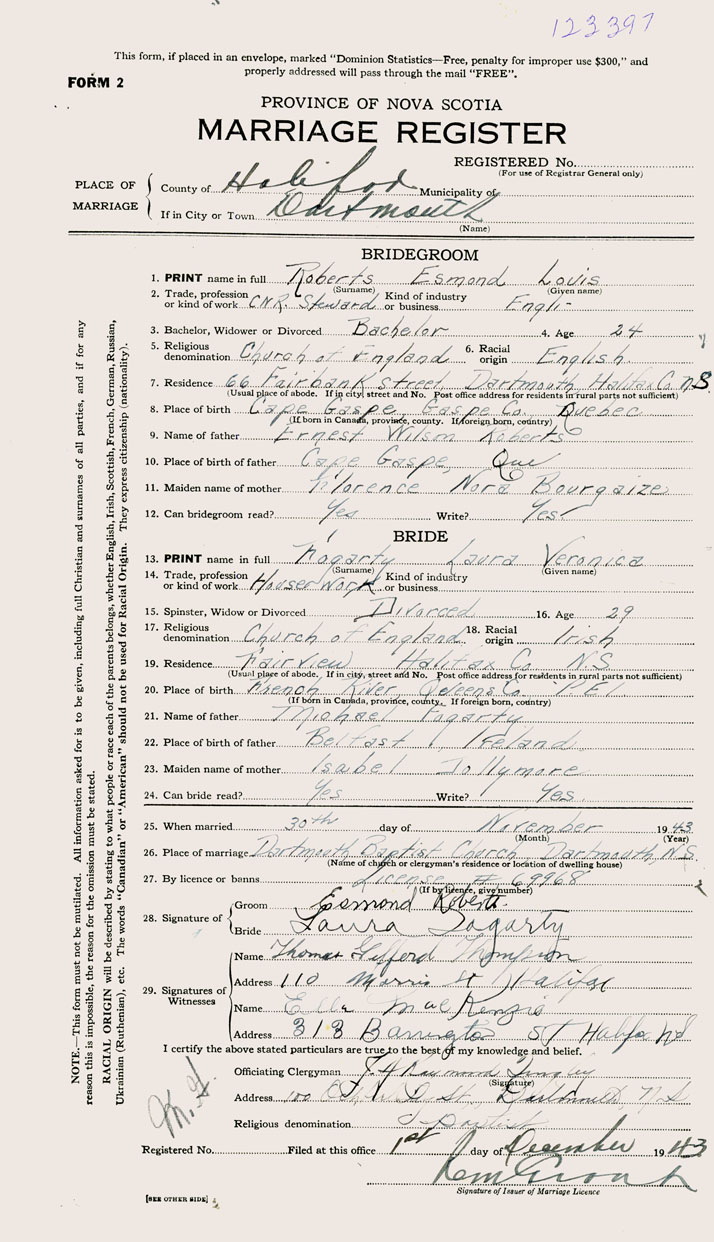 123397
This form, if placed in an envelope, marked "Dominion Statistics—Free, penalty for improper use $300," and
properly addressed will pass through the mail "FREE".
FORM 2
PROVINCE OF NOVA SCOTIA
MARRIAGE REGISTER
REGISTERED No.
(For use of Registrar General only)
PLACE OF MARRIAGE
County of Halifax Municipality of
If in City or Town Dartmouth
(Name)
BRIDEGROOM
1. PRINT name in full Roberts Esmond Louis
(Surname) (Given name)
2. Trade, profession or kind of work C.N.R. Steward Kind of industry or business Engli-
3. Bachelor, Widower or Divorced Bachelor 4. Age 24
5. Religious denomination Church of England 6. Racial origin English
7. Residence 66 Fairbank street, Dartmouth Halifax Co N.S.
(Usual place of abode. If in city, street and No. Post office address for residents in rural parts not sufficient)
8. Place of birth Cape Gaspe, Gaspe Co. Quebec
(If born in Canada, province, county. If foreign born, country)
9. Name of father Ernest Wilson Roberts
10. Place of birth of father Cape Gaspe, Que
11. Maiden name of mother Florence Nora Bourgaize
12. Can bridegroom read? Yes Write? Yes
BRIDE
13. PRINT name in full Fogarty Laura Veronica
(Surname) (Given name)
14. Trade, profession or kind of work House Work Kind of industry or business
15. Spinster, Widow or Divorced Divorced 16. Age 29
17. Religious denomination Church of England 18. Racial origin Irish
19. Residence Fairview Halifax Co N.S
(Usual place of abode. If in city, street and No. Post office address for residents in rural parts not sufficient)
20. Place of birth French River, Queens Co. PEI
(If born in Canada, province, county. If foreign born, country)
21. Name of father Michael Fogarty
22. Place of birth of father Belfast, Ireland
23. Maiden name of mother Isabel Jollymore
24. Can bride read? Yes Write? Yes.
25. When married 30th day of November 1943
(Month) (Year)
26. Place of marriage Dartmouth Baptist Church, Dartmouth, N.S.
(Name of church or clergyman's residence or location of dwelling house)
27. By licence or banns License # 69968
(If by licence, give number)
28. Signature of
Groom Esmond Roberts
Bride Laura Fogarty
29. Signatures of Witnesses
Name Thomas Gifford Thompson
Address 110 Morris St Halifax
Name Ella MacKenzie
Address 313 Barrington St Halifax NS
I certify the above stated particulars are true to the best of my knowledge and belief.
Officiating Clergyman
(Signature)
Address 100 Dartmouth, N S
Religious denomination Baptist
Registered No. Filed at this office 1st day of December 1943
Signature of Issuer of Marriage Licence
[SEE OTHER SIDE]
NOTE.—This form must not be mutilated. All information asked for is to be given, including full Christian and surnames of all parties, and if for any
reason this is impossible, the reason for the omission must be stated.
RACIAL ORIGIN will be described by stating to what people or race each of the parents belongs, whether English, Irish, Scottish, French, German, Russian,
Ukrainian (Ruthenian), etc. The words "Canadian" or "American" should not be used for Racial Origin. They express citizenship (nationality).